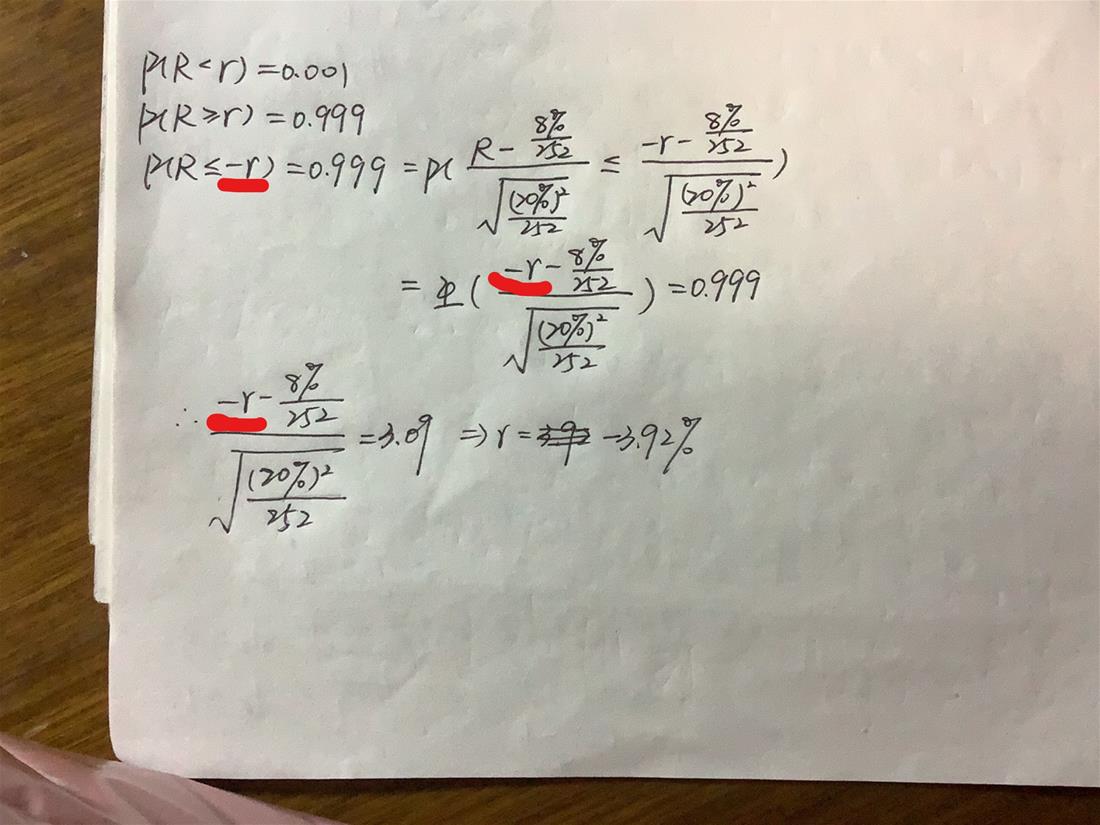 P(R<r)=0.001
P(R≥r)=0.999
P(R≤-r)=0.999=P( (R-8%/252)/√((20%)²/252) ≤ (-r-8%/252)/√((20%)²/252) )
=Φ( (-r-8%/252)/√((20%)²/252) )=0.999
∴ (-r-8%/252)/√((20%)²/252) =3.09 ⇒ r= -3.92%